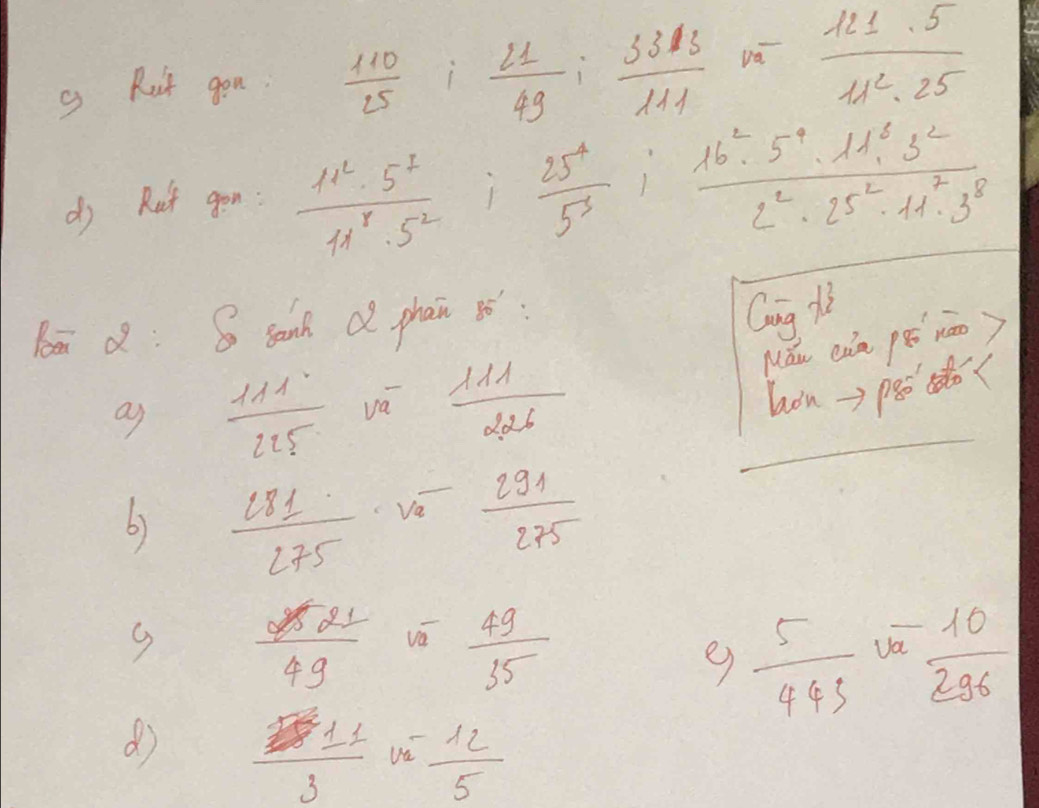 c) Rút gọn: 110/25 ; 21/49 ; 3313/111 và 121 . 5/11² . 25
d) Rút gọn: 11² . 5⁷/11⁸ . 5² ; 25⁴/5³ ; 16² . 5⁹ . 11³ . 3²/2² . 25² . 11⁷ . 3⁸
Bài 2: So sánh 2 phân số:
Cùng tử
Mẫu của psố nào >
hơn → psố đó <
a) 111/225 và 111/226
b) 281/275 và 291/275
c) 21/49 và 49/35
e) 5/443 và 10/296
d) 11/3 và 12/5